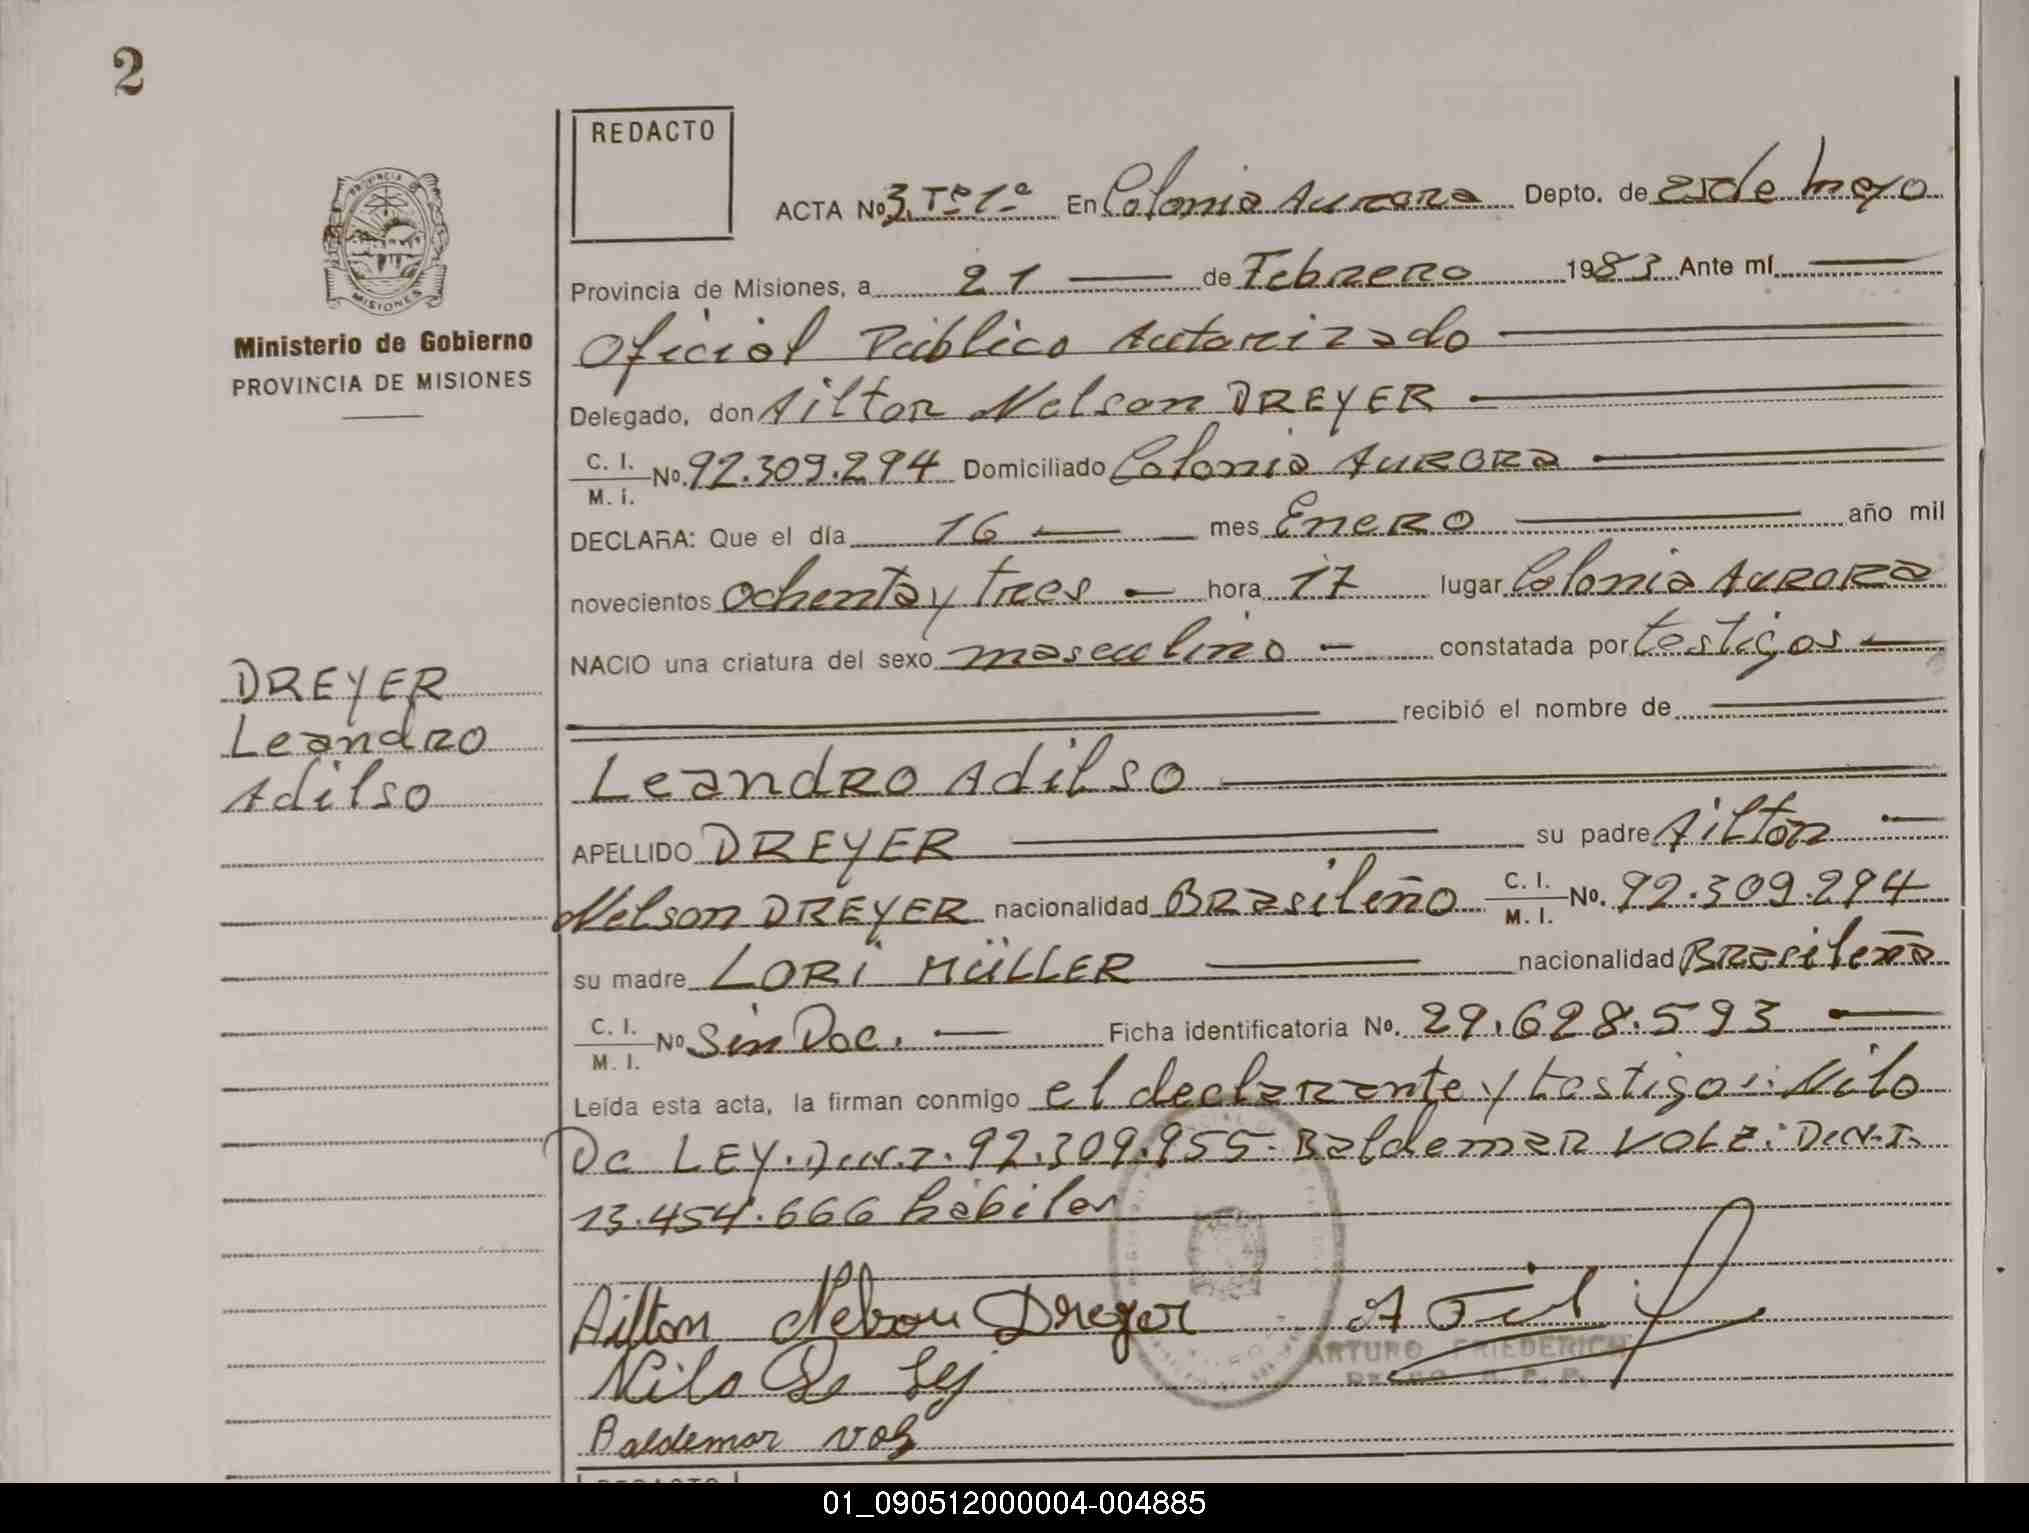 2
REDACTO
ACTA Nº 3. Tº 1º En Colonia Aurora Depto. de 25 de Mayo
PROVINCIA DE MISIONES
Provincia de Misiones, a 21 de Febrero 1983 Ante mí
Ministerio de Gobierno
PROVINCIA DE MISIONES
Oficial Público Autorizado
Delegado, don Ailton Nelson DREYER
C. I. M. I. Nº. 92.309.294 Domiciliado Colonia AURORA
DECLARA: Que el día 16 mes Enero año mil
novecientos ochenta y tres hora 17 lugar Colonia AURORA
NACIO una criatura del sexo masculino constatada por testigos
recibió el nombre de
DREYER
Leandro
Adilso
Leandro Adilso
APELLIDO DREYER su padre Ailton
Nelson DREYER nacionalidad Brasileño C. I. M. I. Nº. 92.309.294
su madre LORI MÜLLER nacionalidad Brasileña
C. I. M. I. Nº Sin Doc. Ficha identificatoria Nº. 29.628.593
Leída esta acta, la firman conmigo el declarante y testigos: Nilo
De LEY. D.N.I. 92.309.955- Baldemar VOLZ: D.N.I.
13.454.666 hábiles
Ailton Nelson Dreyer
ARTURO FRIEDERICH
Nilo De Ley
Baldemar Volz
REDACTO
01_090512000004-004885